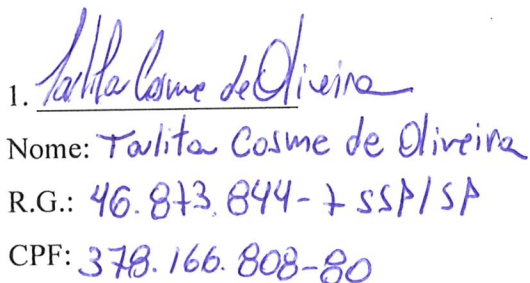 1. Talita Cosme de Oliveira
Nome: Talita Cosme de Oliveira
R.G.: 46.873.844-7 SSP/SP
CPF: 378.166.808-80